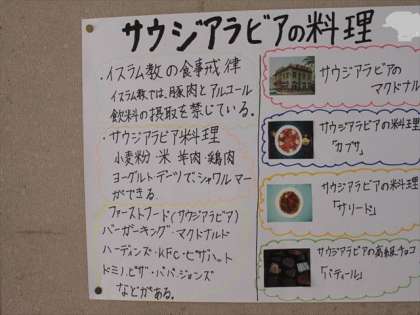 サウジアラビアの料理
・イスラム教の食事戒律
イスラム教では、豚肉とアルコール
飲料の摂取を禁じている。
・サウジアラビア料理
小麦粉・米・羊肉・鶏肉
ヨーグルト・デーツで、シャワルマー
ができる。
ファーストフード(サウジアラビア)
バーガーキング・マクドナルド
ハーディンズ・KFC・ピザハット
ドミノ・ピザ・パパ・ジョンズ
などがある。
サウジアラビアの
マクドナル
サウジアラビアの料理
「カブサ」
サウジアラビアの料理
「サリード」
サウジアラビアの高級チョコ
「バティール」